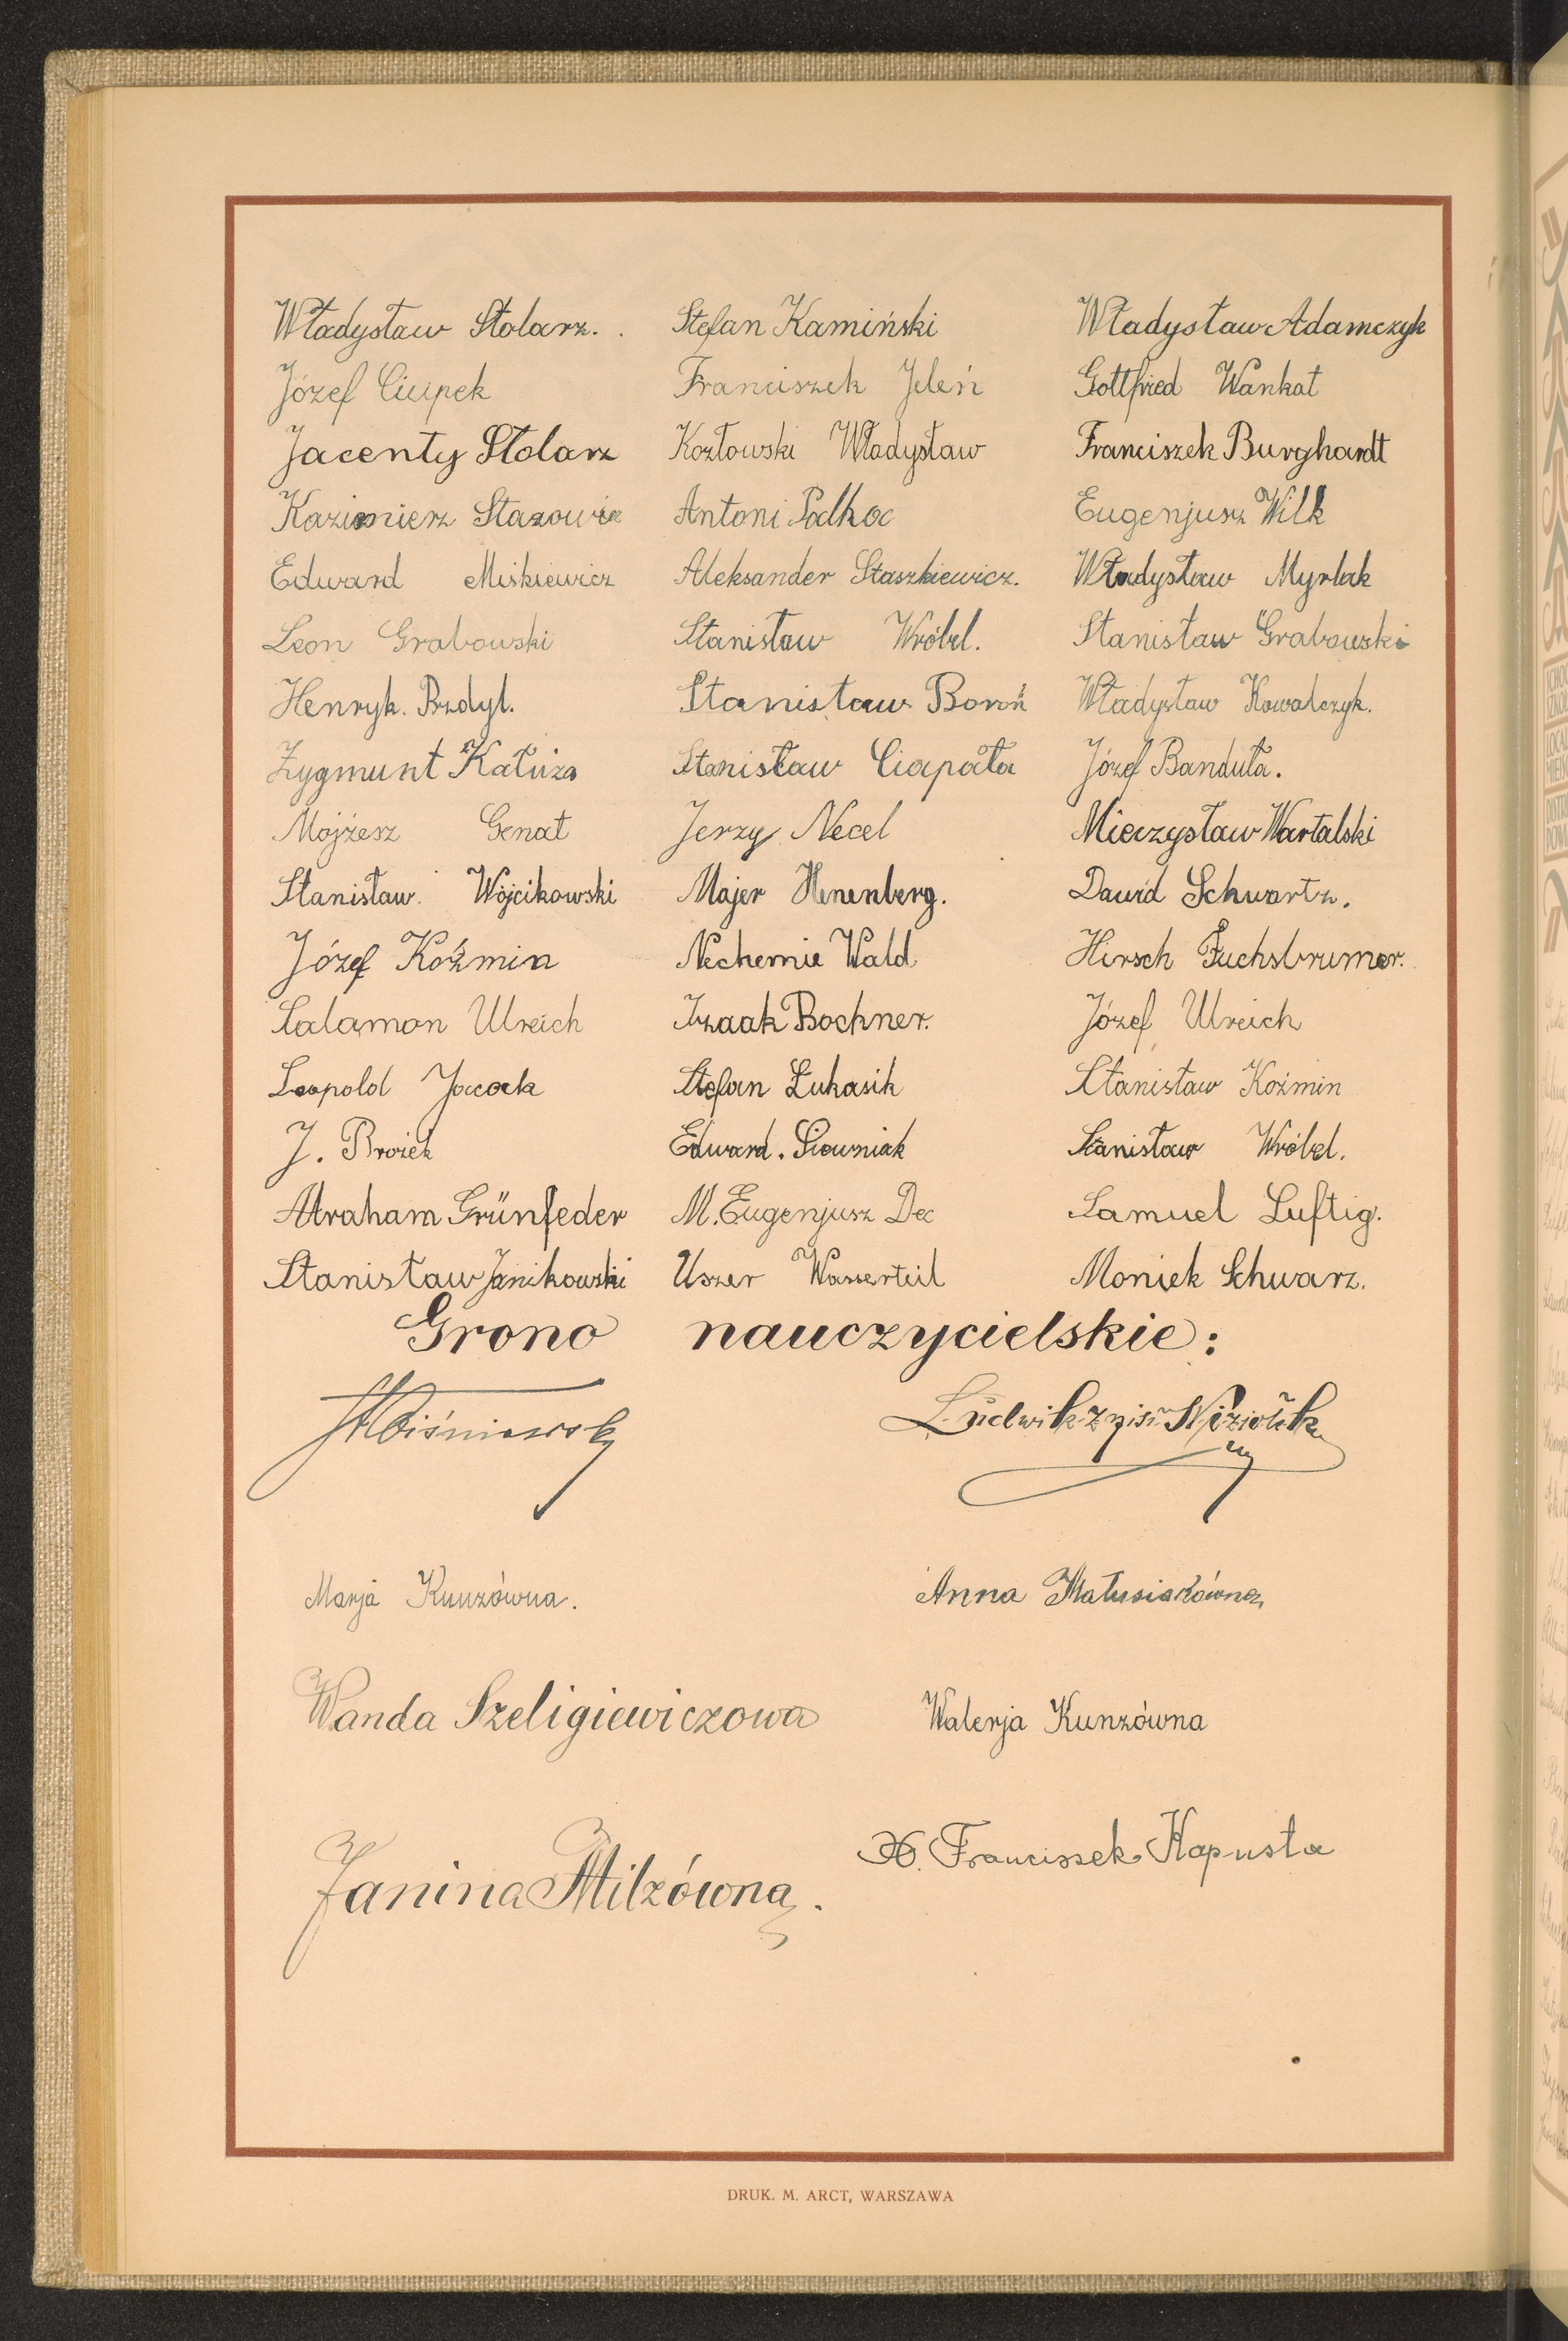 Władysław Stolarz. Stefan Kamiński Władysław Adamczyk
Józef Ciupek Franciszek Jeleń Gottfried Wankat
Jacenty Stolarz Kozłowski Władysław Franciszek Burghardt
Kazimierz Antoni Podkoc Eugenjusz Wilk
Edward Miśkiewicz Aleksander Staszkiewicz. Władysław Myrlak
Leon Grabowski Stanisław Wróbel. Stanisław Grabowski
Henryk. Brzdyl. Stanisław Boroń Władysław Kowalczyk.
Zygmunt Kałuża Stanisław Ciapała Józef Banduła.
Mojżesz Genat Jerzy Necel Mieczysław Wartalski
Stanisław. Wójcikowski Majer Henenberg. Dawid Schwartz.
Józef Koźmin Nechemie Wald Hirsch
Salamon Ulreich Izaak Bochner. Józef Ulreich
Leopold Jacack Stefan Łukasik Stanisław Koźmin
J. Brożek Edward. Siowniak Stanisław Wróbel.
Abraham Grünfeder M. Eugenjusz Dec Samuel Luftig.
Stanisław Janikowski Uszer Wasserteil Moniek Schwarz.
Grono nauczycielskie:
Ludwik
Marja Kunzówna. Anna Matusiakówna
Wanda Szeligiewiczowa Walerja Kunzówna
Janina Milzówna. X. Franciszek Kapusta
DRUK. M. ARCT, WARSZAWA